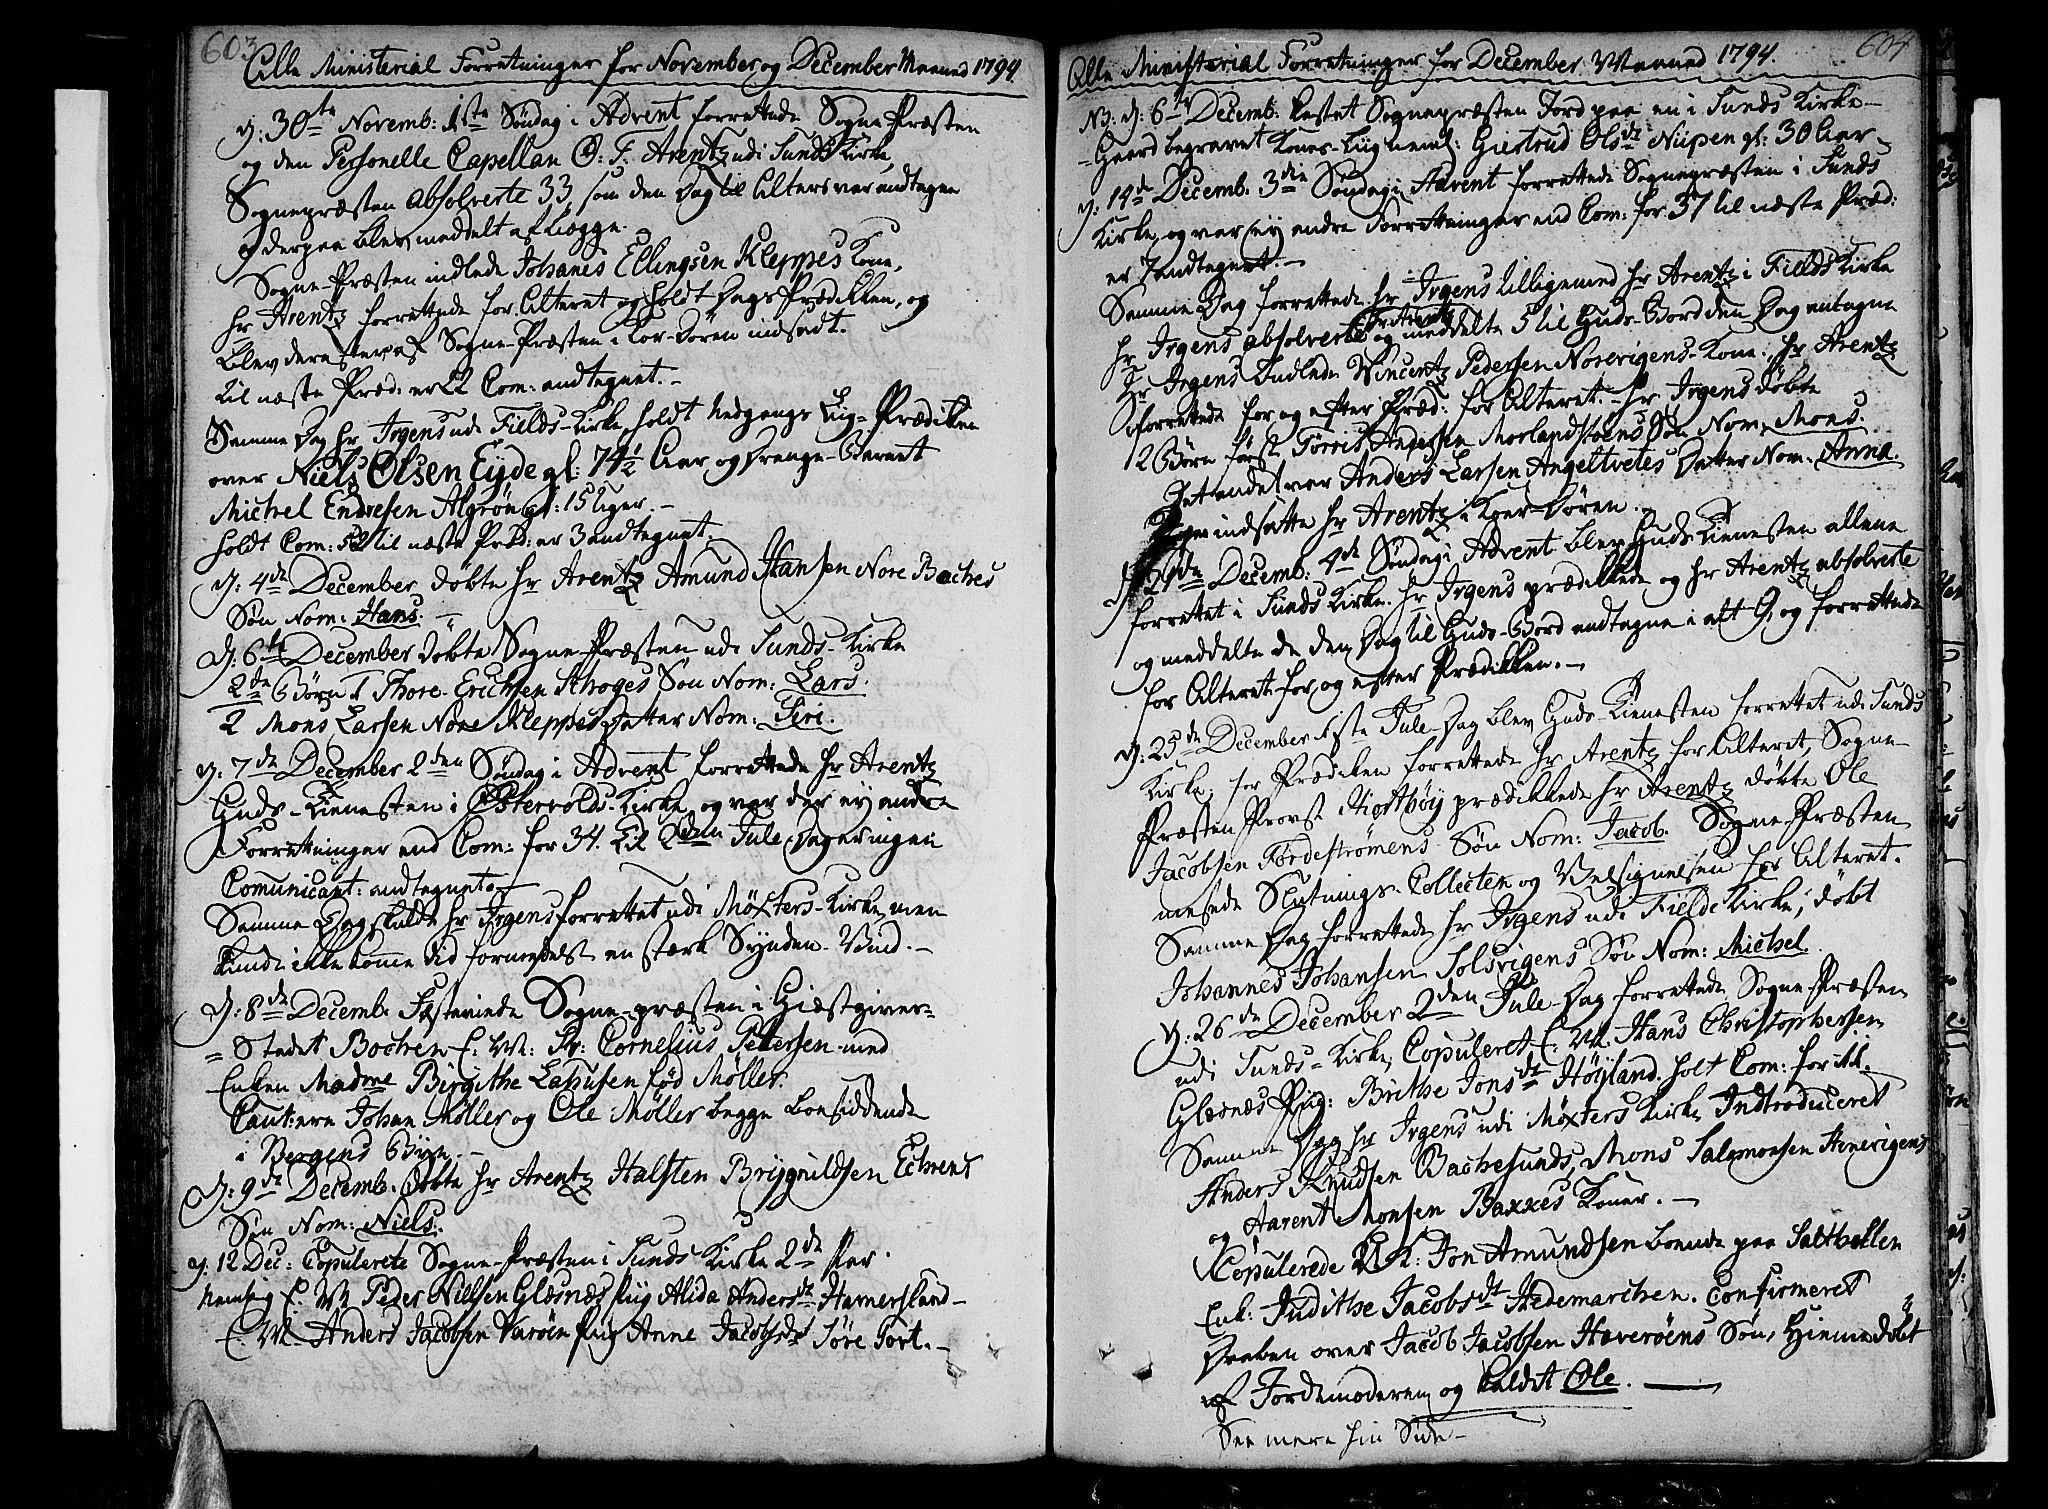 603
Alle Ministerial Forretninger for November og December Maaned 1794
D: 30te Novemb: 1ste Søndag i Advent forrettede Sogne Præsten
og den Personelle Capellan C: F. Arentz udi Sunds Kirke,
Sognepræsten absolverte 33, som den Dag til Alters var andtagen
og derpaa blev meddelt af begge.
Sogne-Præsten indlede Johanes Ellingsen Kleppes Kone,
hr Arentz forrettede for Alteret og holdt Dags Prædikken, og
blev derefter af Sogne-Præsten i Kor-Døren indsadt.
til næste Præd: er Com: andtegnet.
Samme Dag hr Irgens udi Fields-Kirke, holdt Nedgangs Liig-Prædiken
over Niels Olsen Eyde gl: 74½ Aar, og Drenge-Barnet
Michel Endresen Algrøn gl: 15 Uger.
holdt Com: til næste Præd: er 3 andtegnet.
D: 4de December døbte hr Arentz Amund Hansen Nore Baches
Søn Nom: Hans.
D: 6te December døbte Sogne-Præsten udi Sunds-Kirke
2de Børn 1 Thore Erichsen Schoges Søn Nom: Lars.
2 Mons Larsen Nore Kleppes Datter Nom: Siri.
D: 7de December 2den Søndag i Advent forrettede hr Arentz
Guds-Tienesten i Østervolds-Kirke, og var der ey andre
Forretninger end Com: for 34. Til 2den Jule Dag er ingen
Comunicant: andtegnet.
Samme Dag skulde hr Irgens forrettet udi Møxters-Kirke, men
kunde ikke komme did formedelst en stærk Synden-Vind.
D: 8de Decemb. Sogne-præsten i Giæstgiver-
Stedet Bochen E. M: Sr: Cornelius Petersen med
Enken Madme Birgithe Lahusen fød Møller.
Caut:ere Johan Møller og Ole Møller begge boesiddende
i Bergens Bÿe.
D: 9de Decemb. døbte hr Arentz Halsten Brÿgnildsen Echrens
Søn Nom: Niels.
D: 12 Dec: Copulerete Sogne-Præsten i Sunds Kirke 2de Par
nemlig E. M Peder Nilsen Glæsnæs Piig Alida Andersdt Hamersland
E. M. Anders Jacobsen Varøen Piig Anne Jacobsdt Søre Tort.
604
Alle Ministerial Forretninger for December Maaned 1794.
NB: D: 6te Decemb: kastet Sognepræsten Jord paa en i Sunds Kirke-
Gaard begravet Kones-Liig neml: Giertrud Olsdt Nüpen gl: 30 Aar
D: 14de Decemb. 3die Søndag i Advent forrettede Sognepræsten i Sunds
Kirke, og var ey andre Forretninger end Com: for 37 til næste Præd:
er 7 andtegnet.
Samme Dag forrettede hr Irgens tilligemed hr Arentz i Fields Kirke
hr Irgens absolverte og hr Arentz meddelte 5 til Guds-Bord den Dag antagne
hr Irgens Indlede Vincentz Pedersen Norevigens-Kone, hr Arentz
forrettede for og efter Præd: for Alteret. hr Irgens døbte
2 Børn først Tørris Andersen Morlandstøens Søn Nom. Mons.
Det andet var Anders Larsen Angeltvetes Datter Nom: Anna.
indsatte hr Arentz i Koer-Døren.
D 21de Decemb: 4de Søndag i Advent blev Guds Tienesten allene
forrettet i Sunds Kirke. hr Irgens prædikkede og hr Arentz absolverte
og meddelte de den Dag til Guds-Bord andtagne i alt 9, og forrettede
for Alteret for og efter Prædikken.
D: 25de December 1ste Jule-Dag blev Guds-Tienesten forrettet udi Sunds
Kirke, for Prædiken forrettede hr Arentz for Alteret, Sogne-
Præsten Provst Hiortbøy prædikkede hr Arentz døbte Ole
Jacobsen Førdestrømens Søn Nom: Jacob. Sogne-Præsten
messede Slutnings-Collecten og Velsignelsen for Alteret.
Samme Dag forrettede hr Irgens udi Fields Kirke, døbt
Johannes Johansen Solsvigens Søn Nom: Michel.
D: 26de December 2den Jule-Dag forrettede Sogne-Præsten
udi Sunds-Kirke, Copuleret E. M. Hans Christophersen
Glæsnæs Piig: Brithe Jonsdt Høÿland. holt Com: for
Samme Dag hr Irgens udi Møxters Kirke Indtroduceret
Anders Knudsen Bachesunds, Mons Salomonsen Stenevigens
og Aarent Monsen Baxxes Koner.
Copulerede E. K: Jon Amundsen boende paa Salthellen
Enk: Judithe Jacobsdt Hedemarchen. Confirmeret
Daaben over Jacob Jacobsen Haverøens Søn, Hiemmedøbt
af Jordemoderen og kaldet Ole.
See mere hin Side